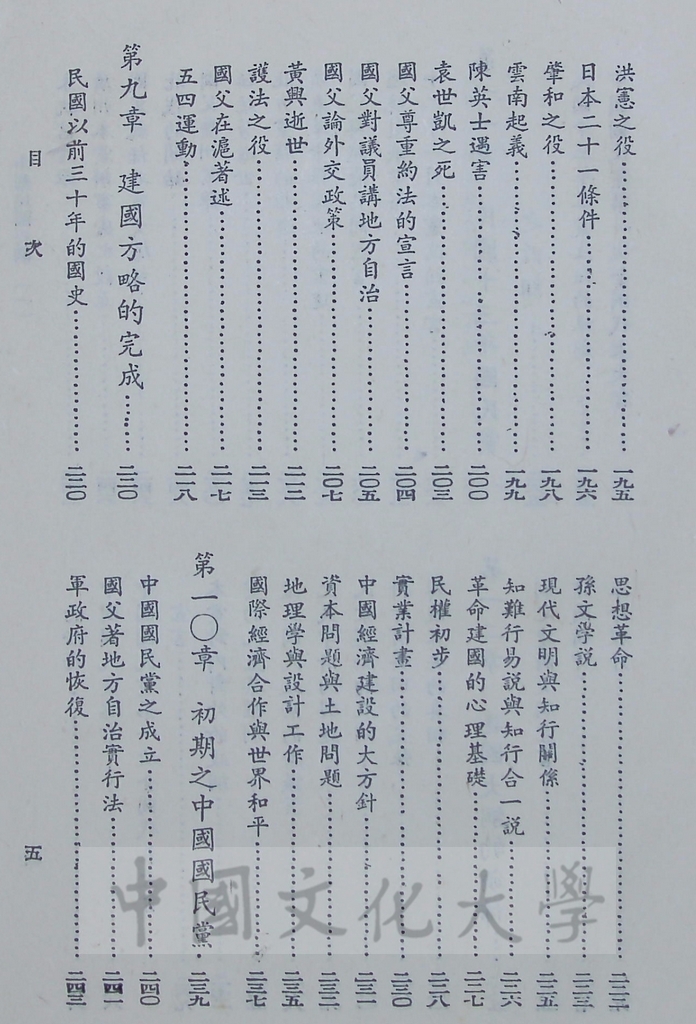 洪憲之役……一九五
日本二十一條件……一九六
肇和之役……一九八
雲南起義……一九九
陳英士遇害……二〇〇
袁世凱之死……二〇三
國父尊重約法的宣言……二〇四
國父對議員講地方自治……二〇五
國父論外交政策……二〇七
黃興逝世……二一二
護法之役……二一三
國父在滬著述……二一七
五四運動……二一八
第九章 建國方略的完成……二二〇
民國以前三十年的國史……二二〇
思想革命……二二二
孫文學說……二二三
現代文明與知行關係……二二五
知難行易說與知行合一說……二二六
革命建國的心理基礎……二二七
民權初步……二二八
實業計畫……二三〇
中國經濟建設的大方針……二三一
資本問題與土地問題……二三二
地理學與設計工作……二三五
國際經濟合作與世界和平……二三七
第一〇章 初期之中國國民黨……二三九
中國國民黨之成立……二四〇
國父著地方自治實行法……二四一
軍政府的恢復……二四三
目次
五
中國文化大學